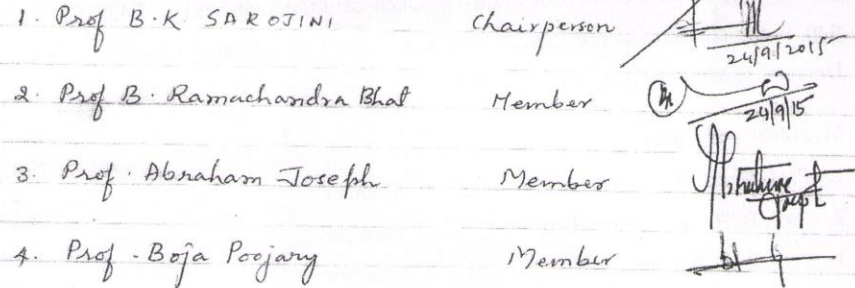 1. Prof B.K SAROJINI Chairperson 24/9/2015
2. Prof B. Ramachandra Bhat Member 24/9/15
3. Prof. Abraham Joseph Member
4. Prof - Boja Poojary Member